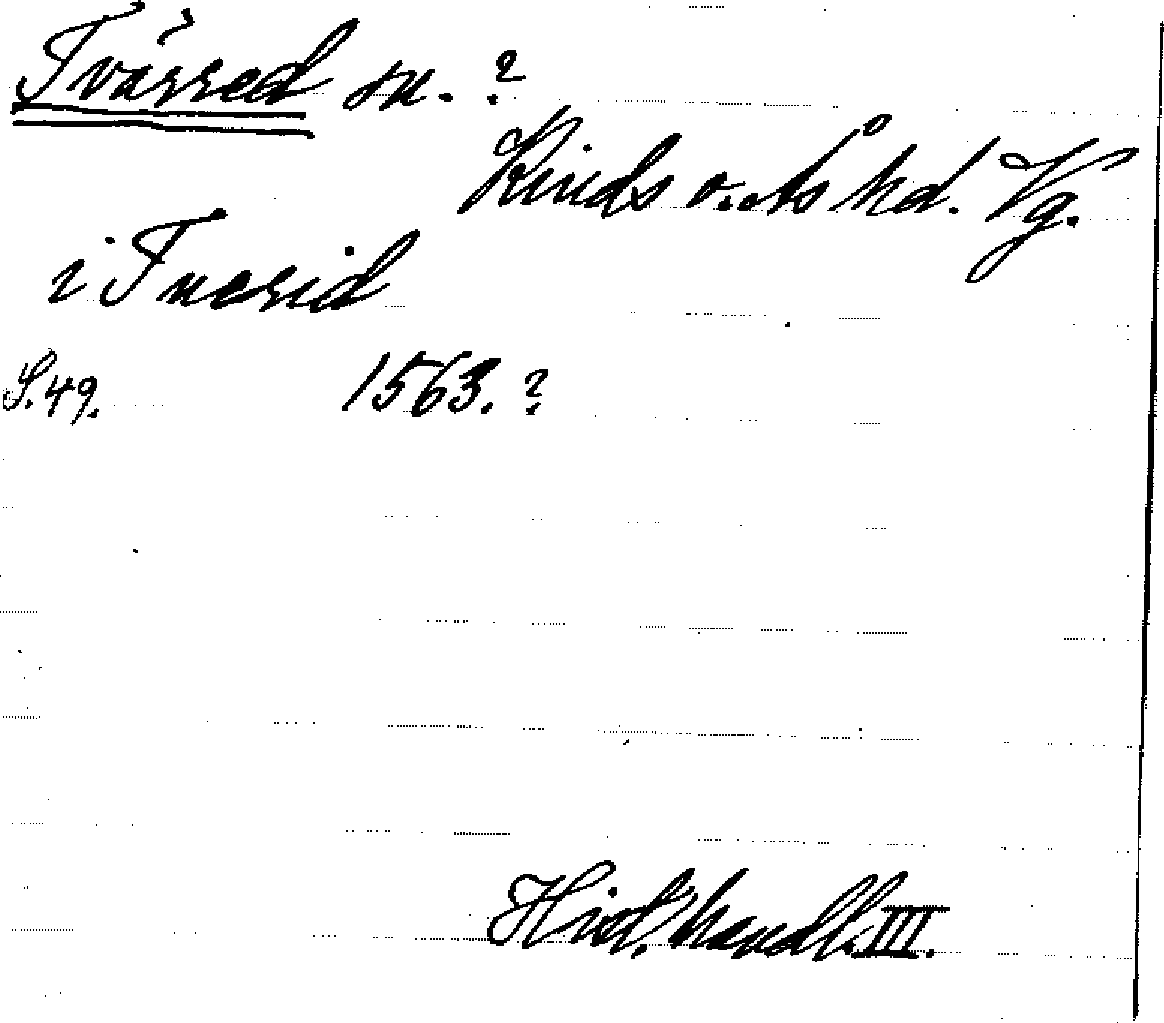 Tvärred sn. ?
Kinds o. Ås hd. Vg.
i Tuerid
S. 49. 1563. ?
Hist. handl. III.